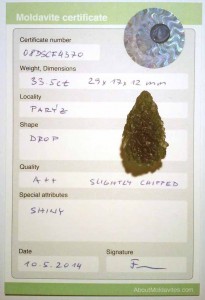 Moldavite certificate
Certificate number
08DSCF4370
Weight, Dimensions
33.5ct 29 x 17 x 12 mm
Locality
PAŘÍZ
Shape
DROP
Quality
A++ SLIGHTLY CHIPPED
Special attributes
SHINY
Date
Signature
10.5.2014
AboutMoldavites.com